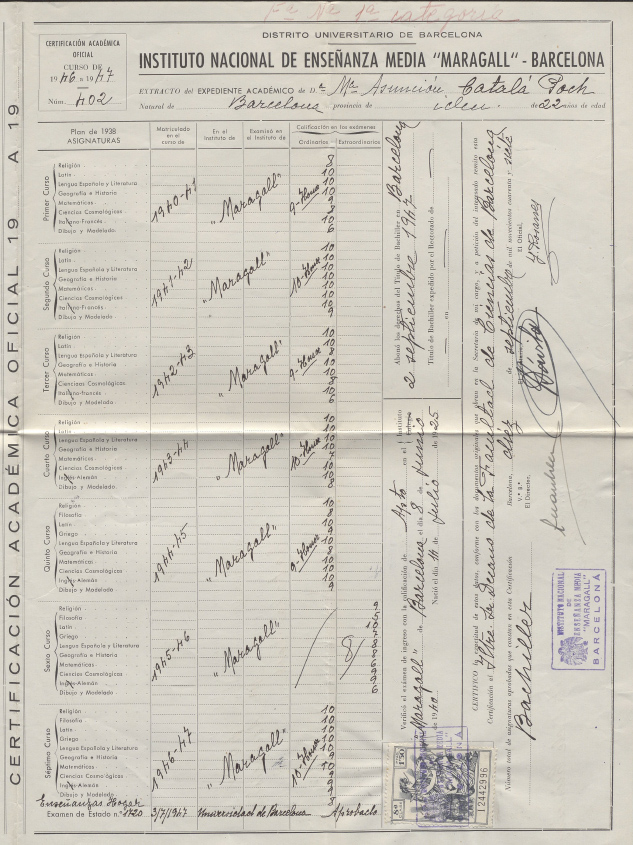 Fª Nª 1ª categoria
CERTIFICACIÓN ACADÉMICA OFICIAL 19 A 19
CERTIFICACIÓN ACADÉMICA
OFICIAL
CURSO DE
1946 a 1947
Núm. 402
DISTRITO UNIVERSITARIO DE BARCELONA
INSTITUTO NACIONAL DE ENSEÑANZA MEDIA "MARAGALL" - BARCELONA
EXTRACTO del EXPEDIENTE ACADÉMICO de D.ª Mª Asunción Catalá Poch
Natural de Barcelona provincia de idem de 22 años de edad
Plan de 1938
ASIGNATURAS
Matriculado
en el
curso de
En el
Instituto de
Examinó en
el Instituto de
Calificación en los exámenes
Ordinarios
Extraordinarios
Primer Curso
1940-41
"Maragall"
9-Honor
Religión 8
Latín 10
Lengua Española y Literatura 10
Geografía e Historia 10
Matemáticas 9
Ciencias Cosmológicas 8
Italiano-Francés 10
Dibujo y Modelado 6
Segundo Curso
1941-42
"Maragall"
10-Honor
Religión 10
Latín 10
Lengua Española y Literatura 10
Geografía e Historia 10
Matemáticas 10
Ciencias Cosmológicas 10
Italiano-Francés 10
Dibujo y Modelado 9
Tercer Curso
1942-43
"Maragall"
9-Honor
Religión 10
Latín 10
Lengua Española y Literatura 8
Geografía e Historia 10
Matemáticas 10
Ciencias Cosmológicas 8
Italiano-Francés 10
Dibujo y Modelado 6
Cuarto Curso
1943-44
"Maragall"
10-Honor
Religión 10
Latín 10
Lengua Española y Literatura 10
Geografía e Historia 10
Matemáticas 7
Ciencias Cosmológicas 10
Inglés-Alemán 10
Dibujo y Modelado 8
Quinto Curso
1944-45
"Maragall"
9-Honor
Religión 9
Filosofía 8
Latín 10
Griego 9
Lengua Española y Literatura 10
Geografía e Historia 8
Matemáticas 10
Ciencias Cosmológicas 10
Inglés-Alemán 10
Dibujo y Modelado 9
Sexto Curso
1945-46
"Maragall"
8
Religión 9
Filosofía 5
Latín 10
Griego
Lengua Española y Literatura 8
Geografía e Historia 8
Matemáticas 6
Ciencias Cosmológicas 9
Inglés-Alemán 9
Dibujo y Modelado 6
Séptimo Curso
1946-47
"Maragall"
10-Honor
Religión 10
Filosofía 10
Latín 10
Griego 10
Lengua Española y Literatura 10
Geografía e Historia 9
Matemáticas 10
Ciencias Cosmológicas 10
Inglés-Alemán 9
Dibujo y Modelado 8
Enseñanzas Hogar
Examen de Estado n.º 1720 3/7/1947 Universidad de Barcelona Aprobado
Abonó los derechos del Título de Bachiller en Barcelona
2 septiembre 1947
Título de Bachiller expedido por el Rectorado de
en de
Verificó el examen de ingreso con la calificación de Apto en el Instituto
"Maragall" de Barcelona el día 8 de junio
de 1940 Nació el día 14 de julio de 1925
CERTIFICO la exactitud de estos datos, conforme con los documentos originales que obran en la Secretaría de mi cargo, y a petición del interesado remito esta
Certificación al Iltre Sr Decano de la Facultad de Ciencias de Barcelona
Barcelona, diez de septiembre de mil novecientos cuarenta y siete
V.º B.º
El Director,
El Oficial,
Número total de asignaturas aprobadas que constan en esta Certificación
Bachiller
INSTITUTO NACIONAL
DE
ENSEÑANZA MEDIA
"MARAGALL"
BARCELONA
12442996